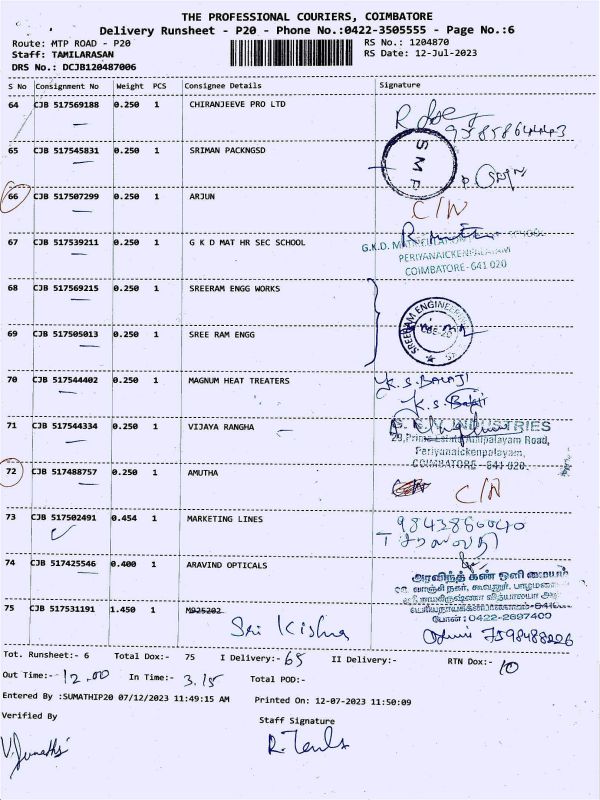 THE PROFESSIONAL COURIERS, COIMBATORE
Delivery Runsheet - P20 - Phone No.:0422-3505555 - Page No.:6
Route: MTP ROAD - P20 RS No.: 1204870
Staff: TAMILARASAN RS Date: 12-Jul-2023
DRS No.: DCJB120487006
S No Consignment No Weight PCS Consignee Details Signature
64 CJB 517569188 0.250 1 CHIRANJEEVE PRO LTD
65 CJB 517545831 0.250 1 SRIMAN PACKNGSD
SMP
66 CJB 517507299 0.250 1 ARJUN
C/N
67 CJB 517539211 0.250 1 G K D MAT HR SEC SCHOOL
G.K.D. SCHOOL
PERIYANAICKENPALAYAM
COIMBATORE-641 020
68 CJB 517569215 0.250 1 SREERAM ENGG WORKS
69 CJB 517505013 0.250 1 SREE RAM ENGG
SREERAM ENGINEERING
70 CJB 517544402 0.250 1 MAGNUM HEAT TREATERS
K.S.BALAJI
K.S.Balaji
71 CJB 517544334 0.250 1 VIJAYA RANGHA
INDUSTRIES
Road,
Periyanaickenpalayam,
COIMBATORE - 641 020.
72 CJB 517488757 0.250 1 AMUTHA
C/N
73 CJB 517502491 0.454 1 MARKETING LINES
9843860040
74 CJB 517425546 0.400 1 ARAVIND OPTICALS
அரவிந்த் கண் ஒளி மையம்
போன்:0422-2697400
75 CJB 517531191 1.450 1 M925202
Sri Kishna
7598488226
Tot. Runsheet:- 6 Total Dox:- 75 I Delivery:- 65 II Delivery:- RTN Dox:- 10
Out Time:- 12.00 In Time:- 3.15 Total POD:-
Entered By :SUMATHIP20 07/12/2023 11:49:15 AM Printed On: 12-07-2023 11:50:09
Verified By Staff Signature